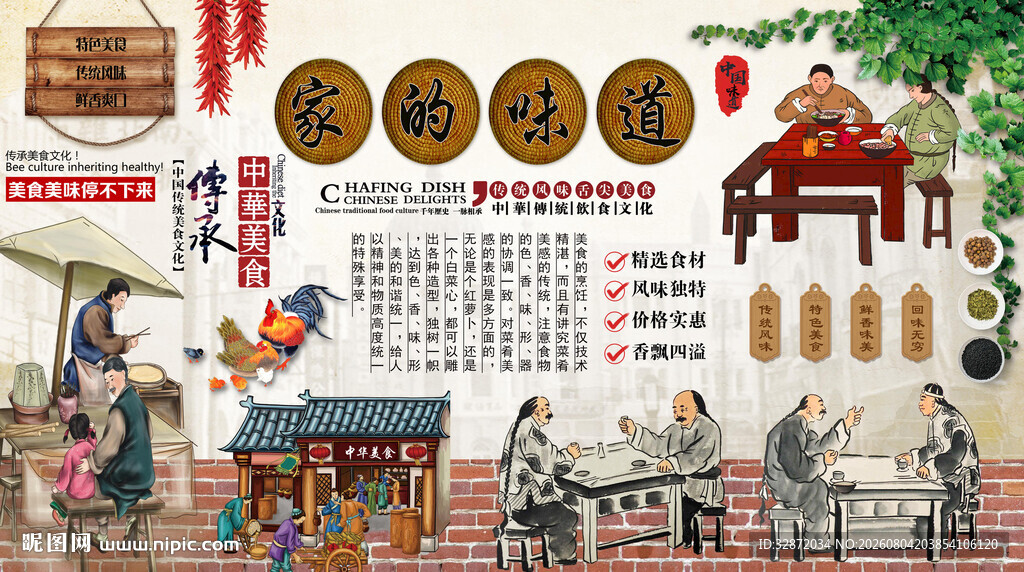 特色美食
传统风味
鲜香爽口
传承美食文化！
Bee culture inheriting healthy!
美食美味停不下来
【中国传统美食文化】
傳承
中華美食
文化
Chinese diet
家的味道
CHAFING DISH
CHINESE DELIGHTS
Chinese traditional food culture 千年歷史 一脉相承
传统风味舌尖美食
中華傳統飲食文化
美食的烹饪，不仅技术
精湛，而且有讲究菜肴
美感的传统，注意食物
的色、香、味、形、器
的协调一致。对菜肴美
感的表现是多方面的，
无论是个红萝卜，还是
一个白菜心，都可以雕
出各种造型，独树一帜
，达到色、香、味、形
、美的和谐统一，给人
以精神和物质高度统一
的特殊享受。
精选食材
风味独特
价格实惠
香飘四溢
中国味道
传统风味
特色美食
鲜香味美
回味无穷
中华美食
昵图网 www.nipic.com
ID:32872034 NO:20260804203854106120